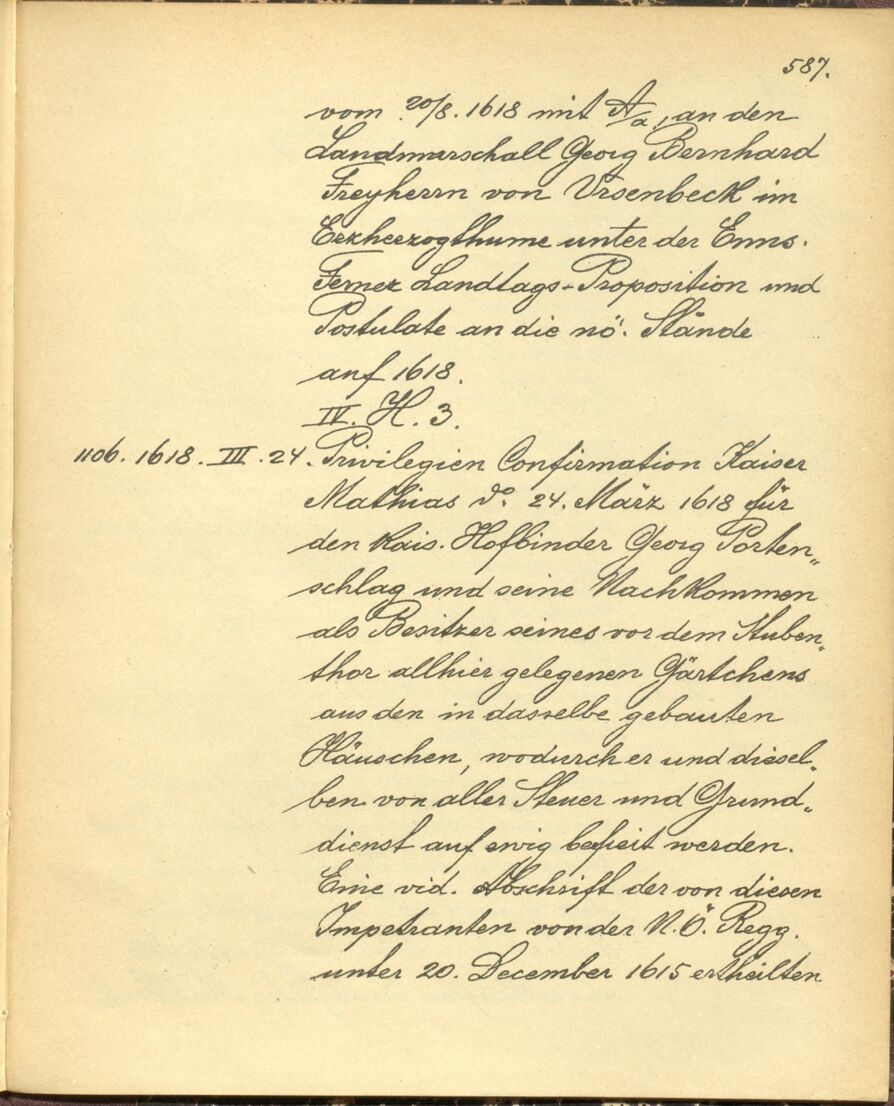 587.
vom 20/8. 1618 mit A/a, an den
Landmarschall Georg Bernhard
Freyherrn von Ursenbeck im
Erzherzogthume unter der Enns.
Ferner Landtags-Proposition und
Postulate an die nö. Stände
auf 1618.
IV. H. 3.
1106. 1618. III. 24. Privilegien Confirmation Kaiser
Mathias do. 24. März 1618 für
den kais. Hofbinder Georg Porten„
schlag und seine Nachkommen
als Besitzer seines vor dem Stuben„
thor allhier gelegenen Gärtchens
aus den in dasselbe gebauten
Häuschen, wodurch er und diesel„
ben von aller Steuer und Grund„
dienst auf ewig befreit werden.
Eine vid. Abschrift der von diesen
Impetranten von der N.Ö. Regg.
unter 20. December 1615 ertheilten